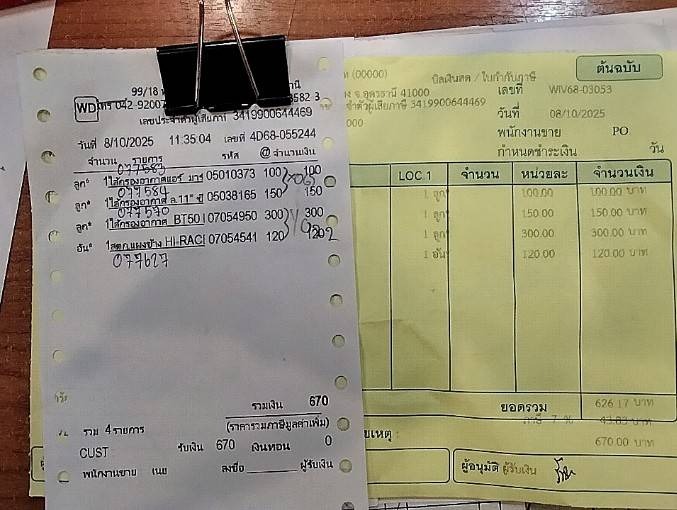 99/18
WD
042-9200
เลขประจำตัวผู้เสียภาษี 3419900644469
วันที่ 8/10/2025 11:35:04 เลขที่ 4D68-055244
จำนวน รายการ รหัส @ จำนวนเงิน
077583
ลูก* 1ไส้กรองอากาศแอร์ มาร 05010373 100 100
077584
ลูก* 1ไส้กรองอากาศ ล.11" ขี 05038165 150 150
077570
ลูก* 1ไส้กรองอากาศ BT50 I 07054950 300 300
อัน* 1สตก.แผงข้าง HI-RACI 07054541 120 120
077627
รวมเงิน 670
รวม 4รายการ (ราคารวมภาษีมูลค่าเพิ่ม)
CUST รับเงิน 670 เงินทอน 0
พนักงานขาย เนย ลงชื่อ ผู้รับเงิน
(00000) บิลเงินสด / ใบกำกับภาษี ต้นฉบับ
จ.อุดรธานี 41000 เลขที่ WIV68-03053
ผู้เสียภาษี 3419900644469 วันที่ 08/10/2025
พนักงานขาย PO.
กำหนดชำระเงิน วัน
LOC.1 จำนวน หน่วยละ จำนวนเงิน
1 ลูก 100.00 100.00 บาท
1 ลูก 150.00 150.00 บาท
1 ลูก 300.00 300.00 บาท
1 อัน 120.00 120.00 บาท
ยอดรวม 626.17 บาท
ภาษี 7 % 43.83 บาท
670.00 บาท
ผู้อนุมัติ ผู้รับเงิน